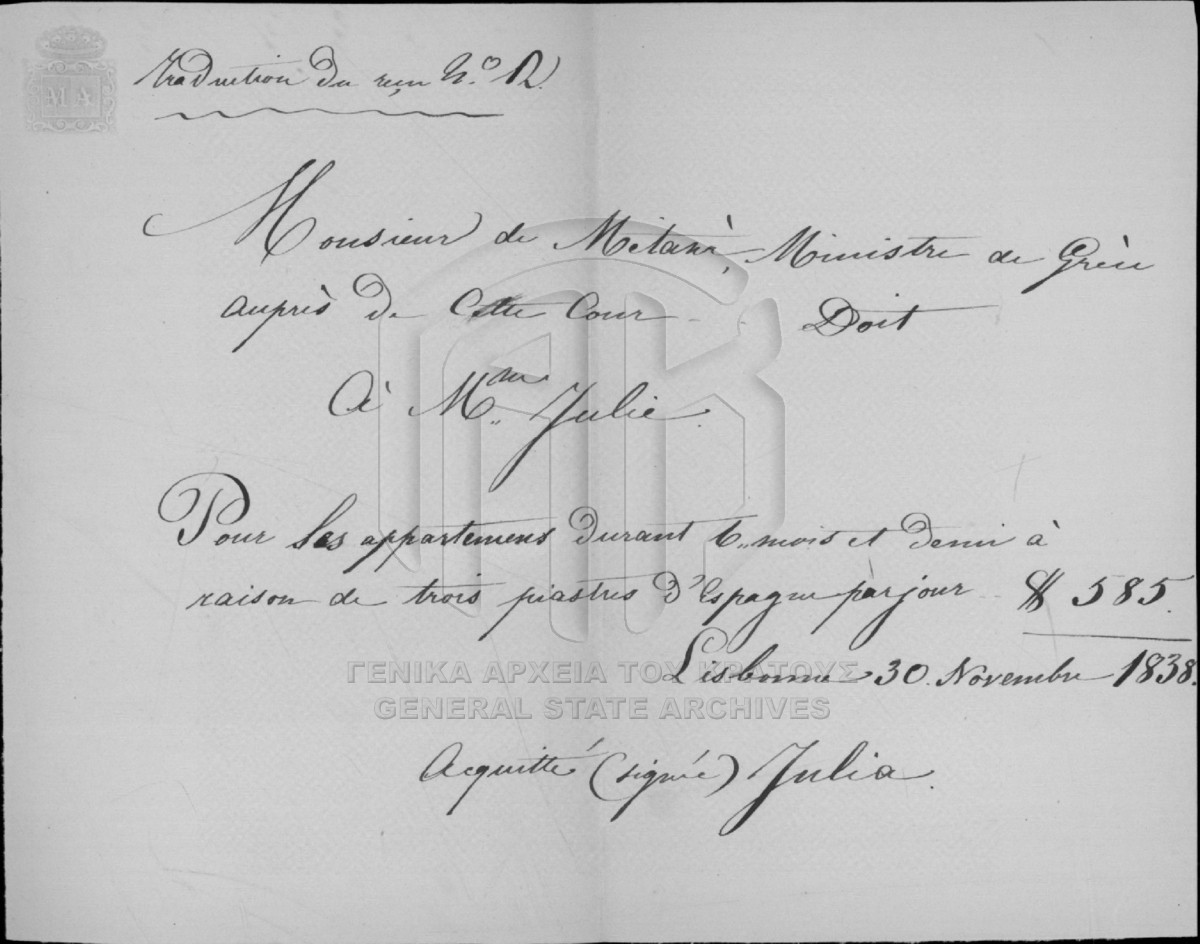 MA
traduction du reçu N.o 12.
Monsieur de Métaxà, Ministre de Grèce
auprès de Cette Cour - - Doit
à Mme Julie.
Pour Ses appartemens durant 6 mois et demi à
raison de trois piastres d'Espagne par jour $ 585.
ΓΕΝΙΚΑ ΑΡΧΕΙΑ ΤΟΥ ΚΡΑΤΟΥΣ
Lisbonne 30. Novembre 1838.
GENERAL STATE ARCHIVES
Acquitté (signée) Julia.